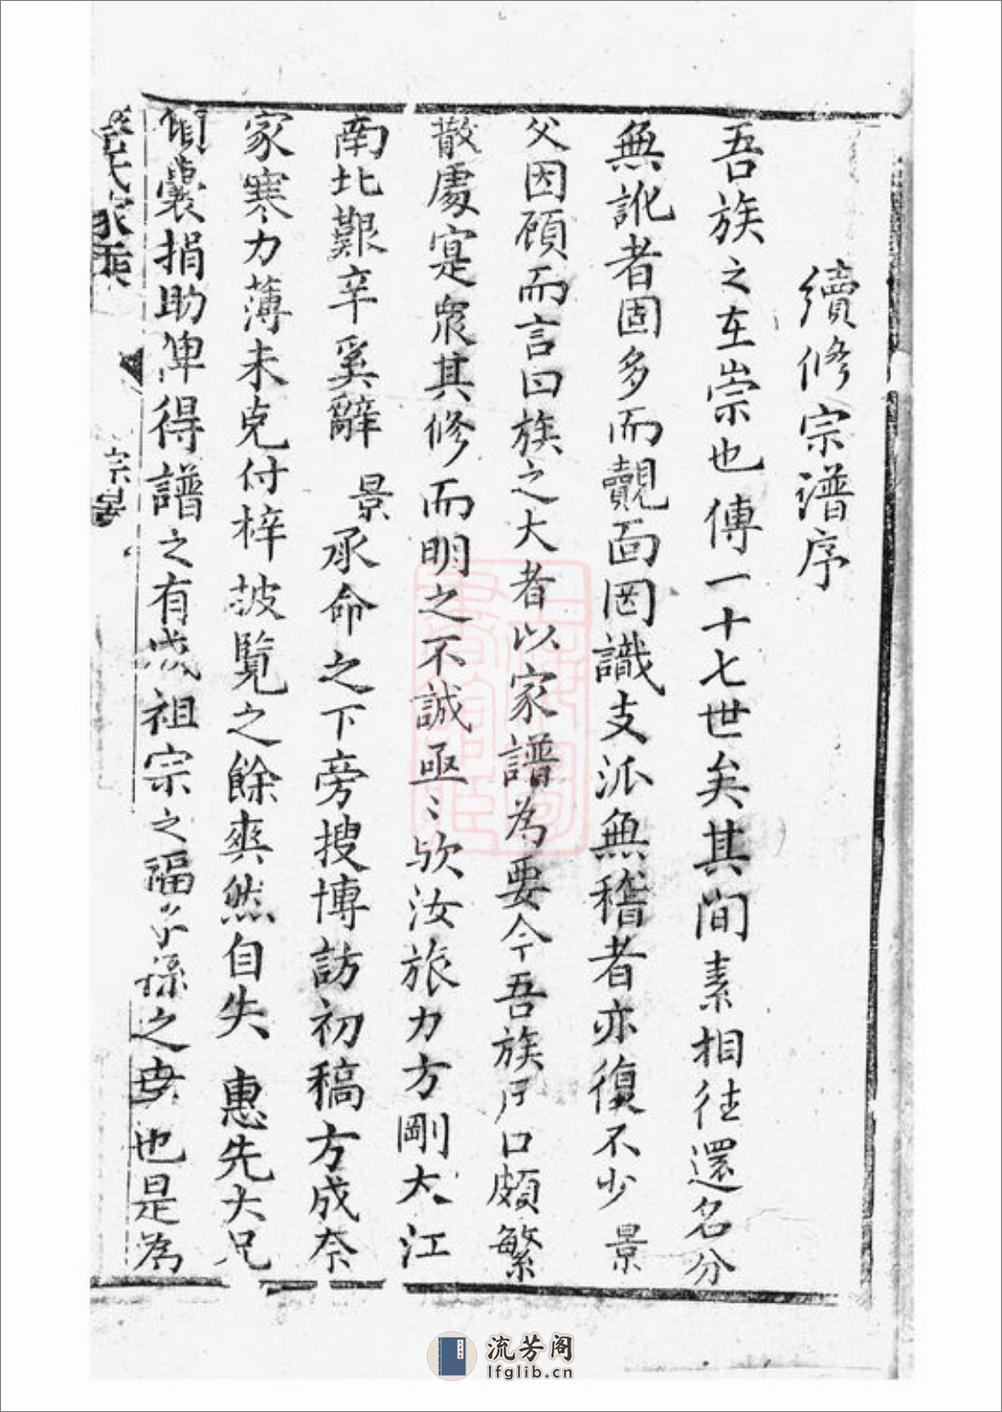 續修宗谱序
吾族之在崇也傳一十七世矣其间素相往還名分
無訛者固多而覿面罔識支派無稽者亦復不少景
父因顾而言曰族之大者以家譜為要今吾族戶口頗繁
散處寔衆其修而明之不誠亟〻欤汝旅力方剛大江
南北艱辛奚辭 景承命之下旁搜博訪初稿方成奈
家寒力薄未克付梓披覧之餘爽然自失 惠先大兄
傾囊捐助俾得譜之有成祖宗之福子孫之幸也是為
氏家乘
宗
流芳阁
lfglib.cn